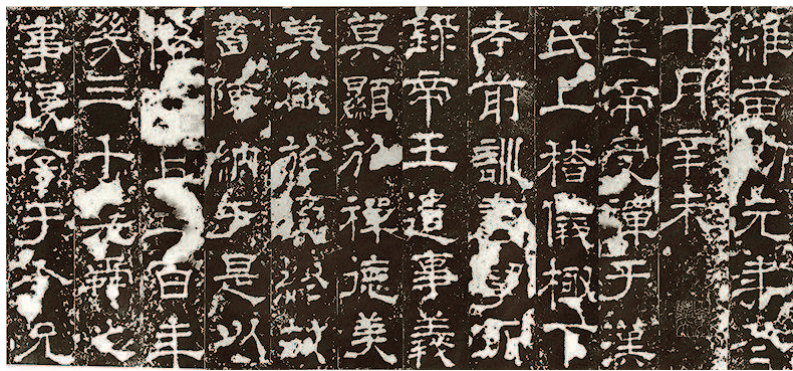 維黃初元年冬
十月辛未
皇帝受禪于漢
氏上稽儀極下
考前訓書契所
錄帝王遺事義
莫顯於禪德美
莫盛於受終故
書陳納于是以
降且二百年
幾三千堯舜之
事復存于今允